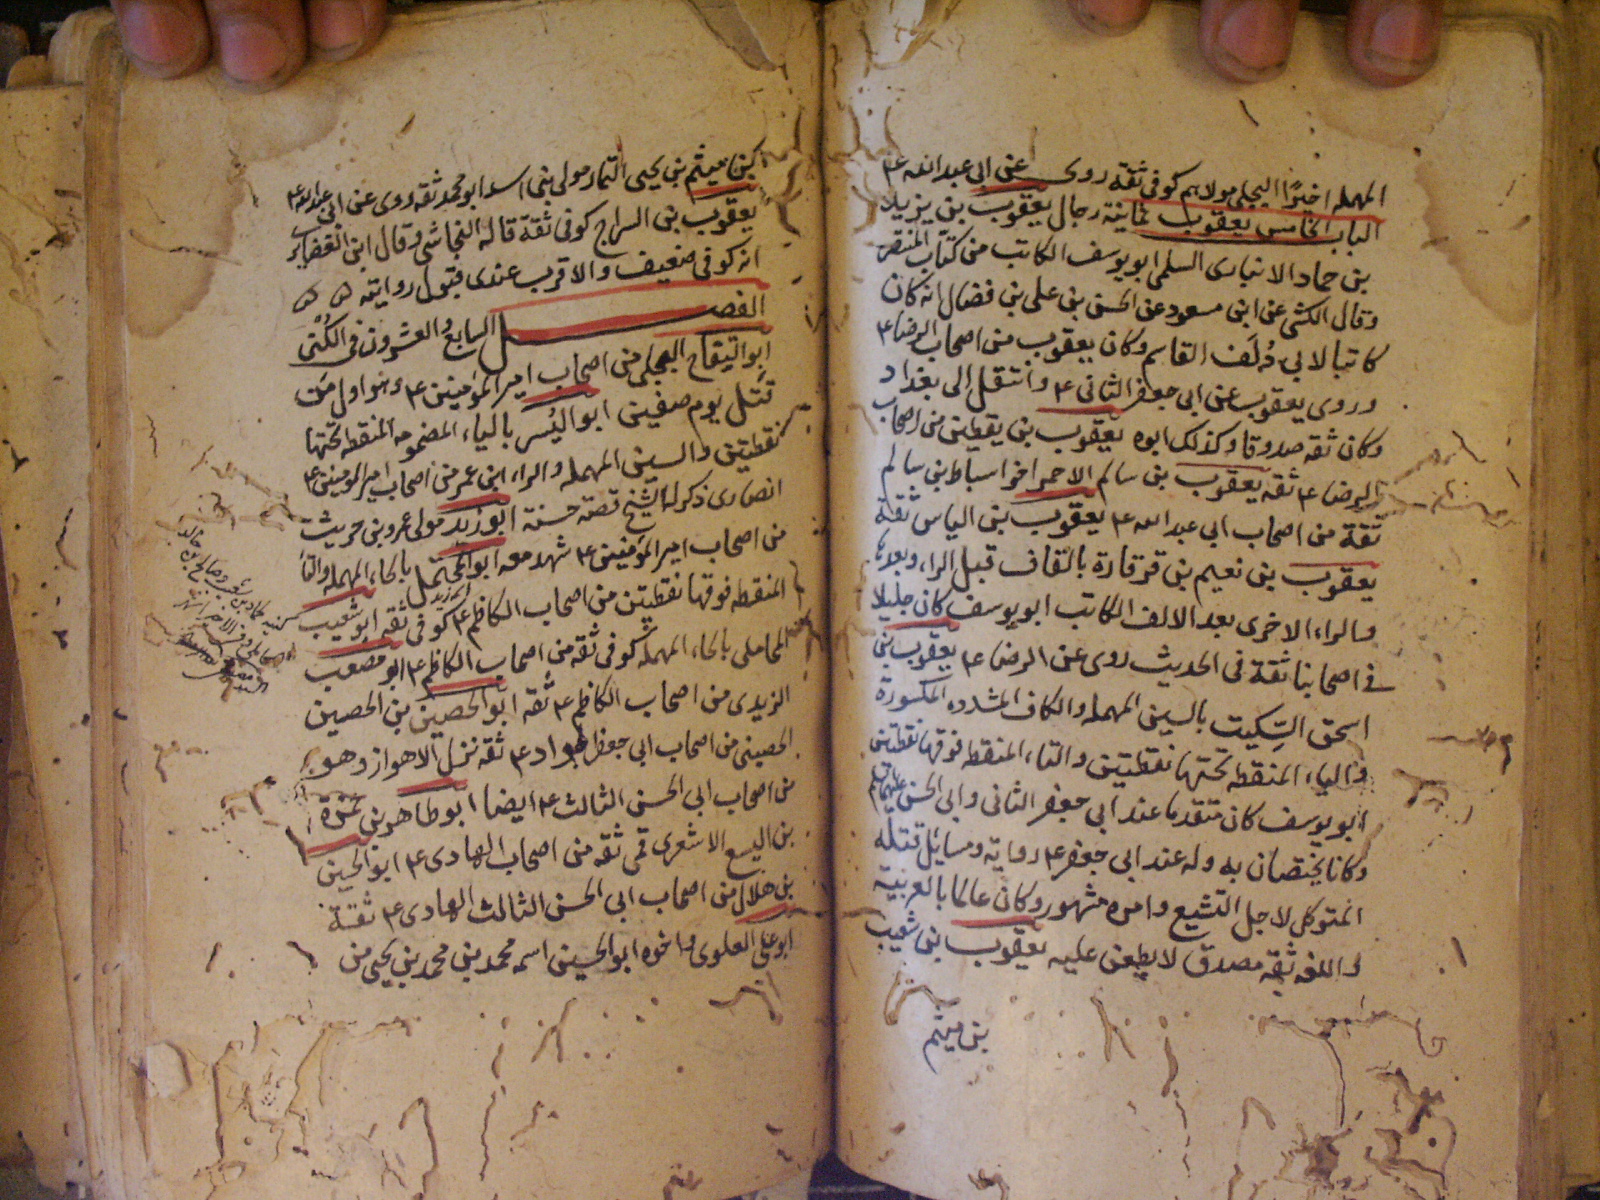 المهمله اخيرًا البجلي مولاهم كوفي ثقة روى عن ابي عبد الله ع
الباب الخامس يعقوب ثمانية رجال يعقوب بن يزيد
بن حماد الانباري السلمي ابو يوسف الكاتب من كتّاب المنتصر
وقال الكشي عن ابن مسعود عن الحسن بن علي بن فضال انه كان
كاتبا لابي دُلَف القاسم وكان يعقوب من اصحاب الرضا ع
وروى يعقوب عن ابي جعفر الثاني ع وانتقل الى بغداد
وكان ثقه صدوقا وكذلك ابوه يعقوب بن يقطين من اصحاب
الرضا ع ثقه يعقوب بن سالم الاحمر اخو اسباط بن سالم
ثقة من اصحاب ابي عبد الله ع يعقوب بن الياس ثقة
يعقوب بن نعيم بن قرقارة بالقاف قبل الراء وبعدها
والراء الاخرى بعد الالف الكاتب ابو يوسف كان جليلا
في اصحابنا ثقة في الحديث روى عن الرضا ع يعقوب بن
اسحق السِّكيت بالسين المهمله والكاف المشدده المكسورة
والياء المنقطه تحتها نقطتين والتاء المنقطه فوقها نقطتين
ابو يوسف كان متقدما عند ابي جعفر الثاني وابي الحسن عليهما
وكانا يختصان به وله عند ابي جعفر ع رواية ومسائل قتله
المتوكل لاجل التشيع وامره مشهور وكان عالما بالعربية
واللغه ثقه مصدق لا يطعن عليه يعقوب بن شعيب
بن ميثم
بن ميثم بن يحيى التمار مولى بني اسد ابو محمد ثقه روى عن ابي عبد الله ع
يعقوب بن السراج كوفي ثقة قاله النجاشي وقال ابن الغضايري
انه كوفي ضعيف والاقرب عندي قبول روايته
الفصل السابع والعشرون في الكُنى
ابو اليقاح البجلي من اصحاب امير المؤمنين ع وهو اول من
قتل يوم صفين ابو اليُسر بالياء المضمومه المنقطه تحتها
نقطتين والسين المهمله والراء ابن عمر من اصحاب امير المؤمنين ع
انصارى ذكر له الشيخ قصة حسنة ابو زيد مولى عمرو بن حريث
من اصحاب امير المؤمنين ع شهد معه ابو المحتمل بالحاء المهمله والتاء
المنقطه فوقها نقطتين من اصحاب الكاظم ع كوفي ثقه ابو شعيب
المحاملي بالحاء المهمله كوفي ثقه من اصحاب الكاظم ع ابو مصعب
الزيدي من اصحاب الكاظم ع ثقه ابو الحصين بن الحصين
الحصيني من اصحاب ابي جعفر الجواد ع ثقه نزل الاهواز وهو
من اصحاب ابي الحسن الثالث ع ايضا ابو طاهر بن حمزة
بن اليسع الاشعري قمي ثقه من اصحاب الهادي ع ابو الحسين
بن هلال من اصحاب ابي الحسن الثالث الهادي ع ثقة
ابو علي العلوي واخوه ابو الحسين اسمه محمد بن محمد بن يحيى من